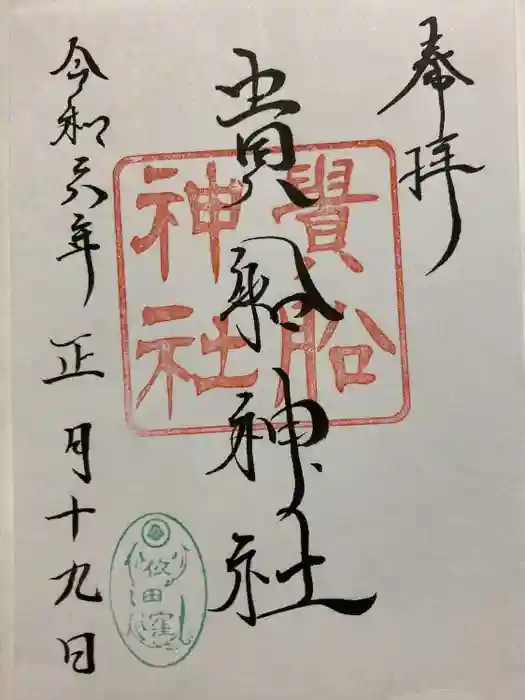 奉拝
貴船神社
貴船
神社
令和六年正月十九日